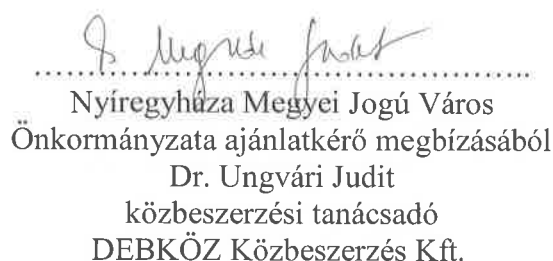 Nyíregyháza Megyei Jogú Város
Önkormányzata ajánlatkérő megbízásából
Dr. Ungvári Judit
közbeszerzési tanácsadó
DEBKÖZ Közbeszerzés Kft.